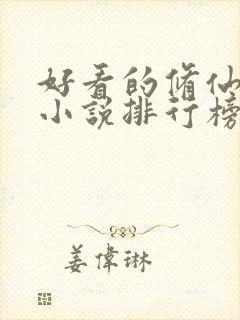 好看的脩仙
小說排行榜
姜偉琳